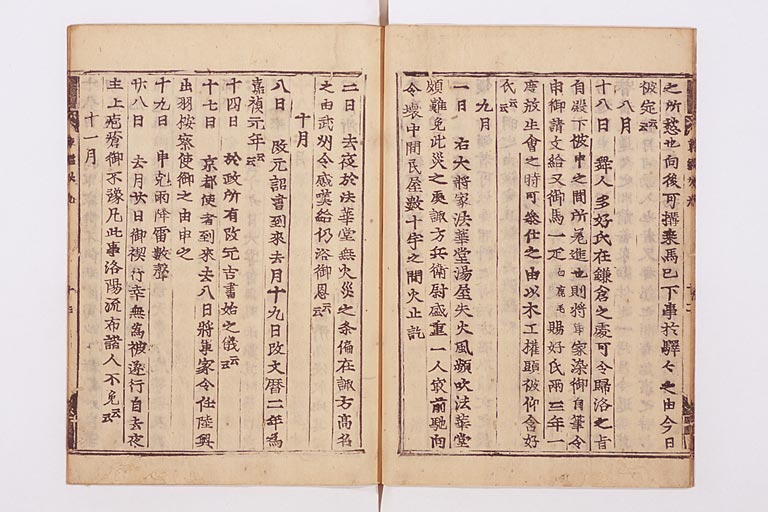 之所愁也向後可撰乗馬已下事於驛々之由今日
被定云云
八月
十八日 舞人多好氏在鎌倉之處可令歸洛之旨
自殿下被申之間所急進也則將軍家染御自筆令
申御請文給又御馬一疋白鹿毛賜好氏兩三年一
度放生會之時可参仕之由以木工權頭被仰含好
氏云云
九月
一日 右大將家法華堂湯屋失火風頻吹法華堂
頗難免此災之處諏方兵衛尉盛重一人寂前馳向
令壊中間民屋數十宇之間火止訖
二日 去夜於法華堂無火災之条偏在諏方高名
之由武州令感嘆給仍浴御恩云云
十月
八日 改元詔書到來去月十九日改文暦二年為
嘉禎元年云云
十四日 於政所有改元吉書始之儀云云
十七日 京都使者到來去八日將軍家令任陸奥
出羽按察使御之由申之
十九日 申剋雨降雷數聲
廿八日 去月廿日御禊行幸無為被遂行自去夜
主上疱瘡御不豫凡此事洛陽流布諸人不免云云
十一月